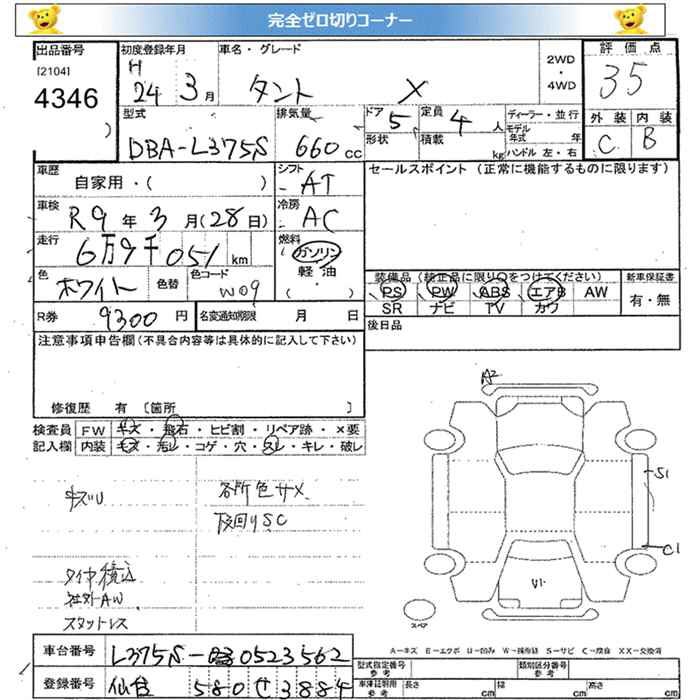 完全ゼロ切りコーナー
出品番号 初度登録年月 車名・グレード 評価点
[2104] H 2WD
4346 24 3月 タント X ・ 35
4WD
型式 排気量 ドア 5 定員 4人 ディーラー・並行 外装 内装
DBA-L375S 660cc 形状 積載 kg モデル年式 年 C B
ハンドル 左・右
車歴 シフト セールスポイント(正常に機能するものに限ります)
自家用・( ) AT
車検 冷房
R9年3月(28日) AC
走行 燃料
6万9千051km ガソリン
色 色替 色コード 軽油 装備品(純正品に限り○をつけてください) 新車保証書
ホワイト W09 ( ・ ) PS PW ABS エアB AW 有・無
SR ナビ TV カワ
R券 9300円 名変通知期限 月 日 後日品
注意事項申告欄(不具合内容等は具体的に記入して下さい)
修復歴 有 [箇所 ]
検査員 FW キズ・飛石・ヒビ割・リペア跡・×要
記入欄 内装 キズ・汚レ・コゲ・穴・スレ・キレ・破レ
A2
キズU 各所色サメ S1
下回りSC C1
タイヤ積込 U1
社外AW
スタットレス スペア
A-キズ E-エクボ U-凹み W-補修跡 S-サビ C-腐食 XX-交換済
車台番号 L375S-0523562
型式指定番号 参考 類別区分番号 参考
登録番号 仙台 580 せ 3884
車庫証明用 参考 長さ cm 幅 cm 高さ cm